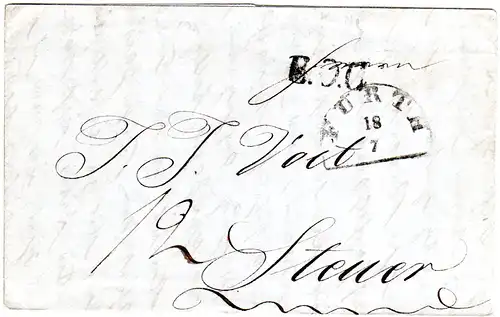 Herrn
E.J.C.
FÜRTH
18
7
J. J. Voit
12
Steuer